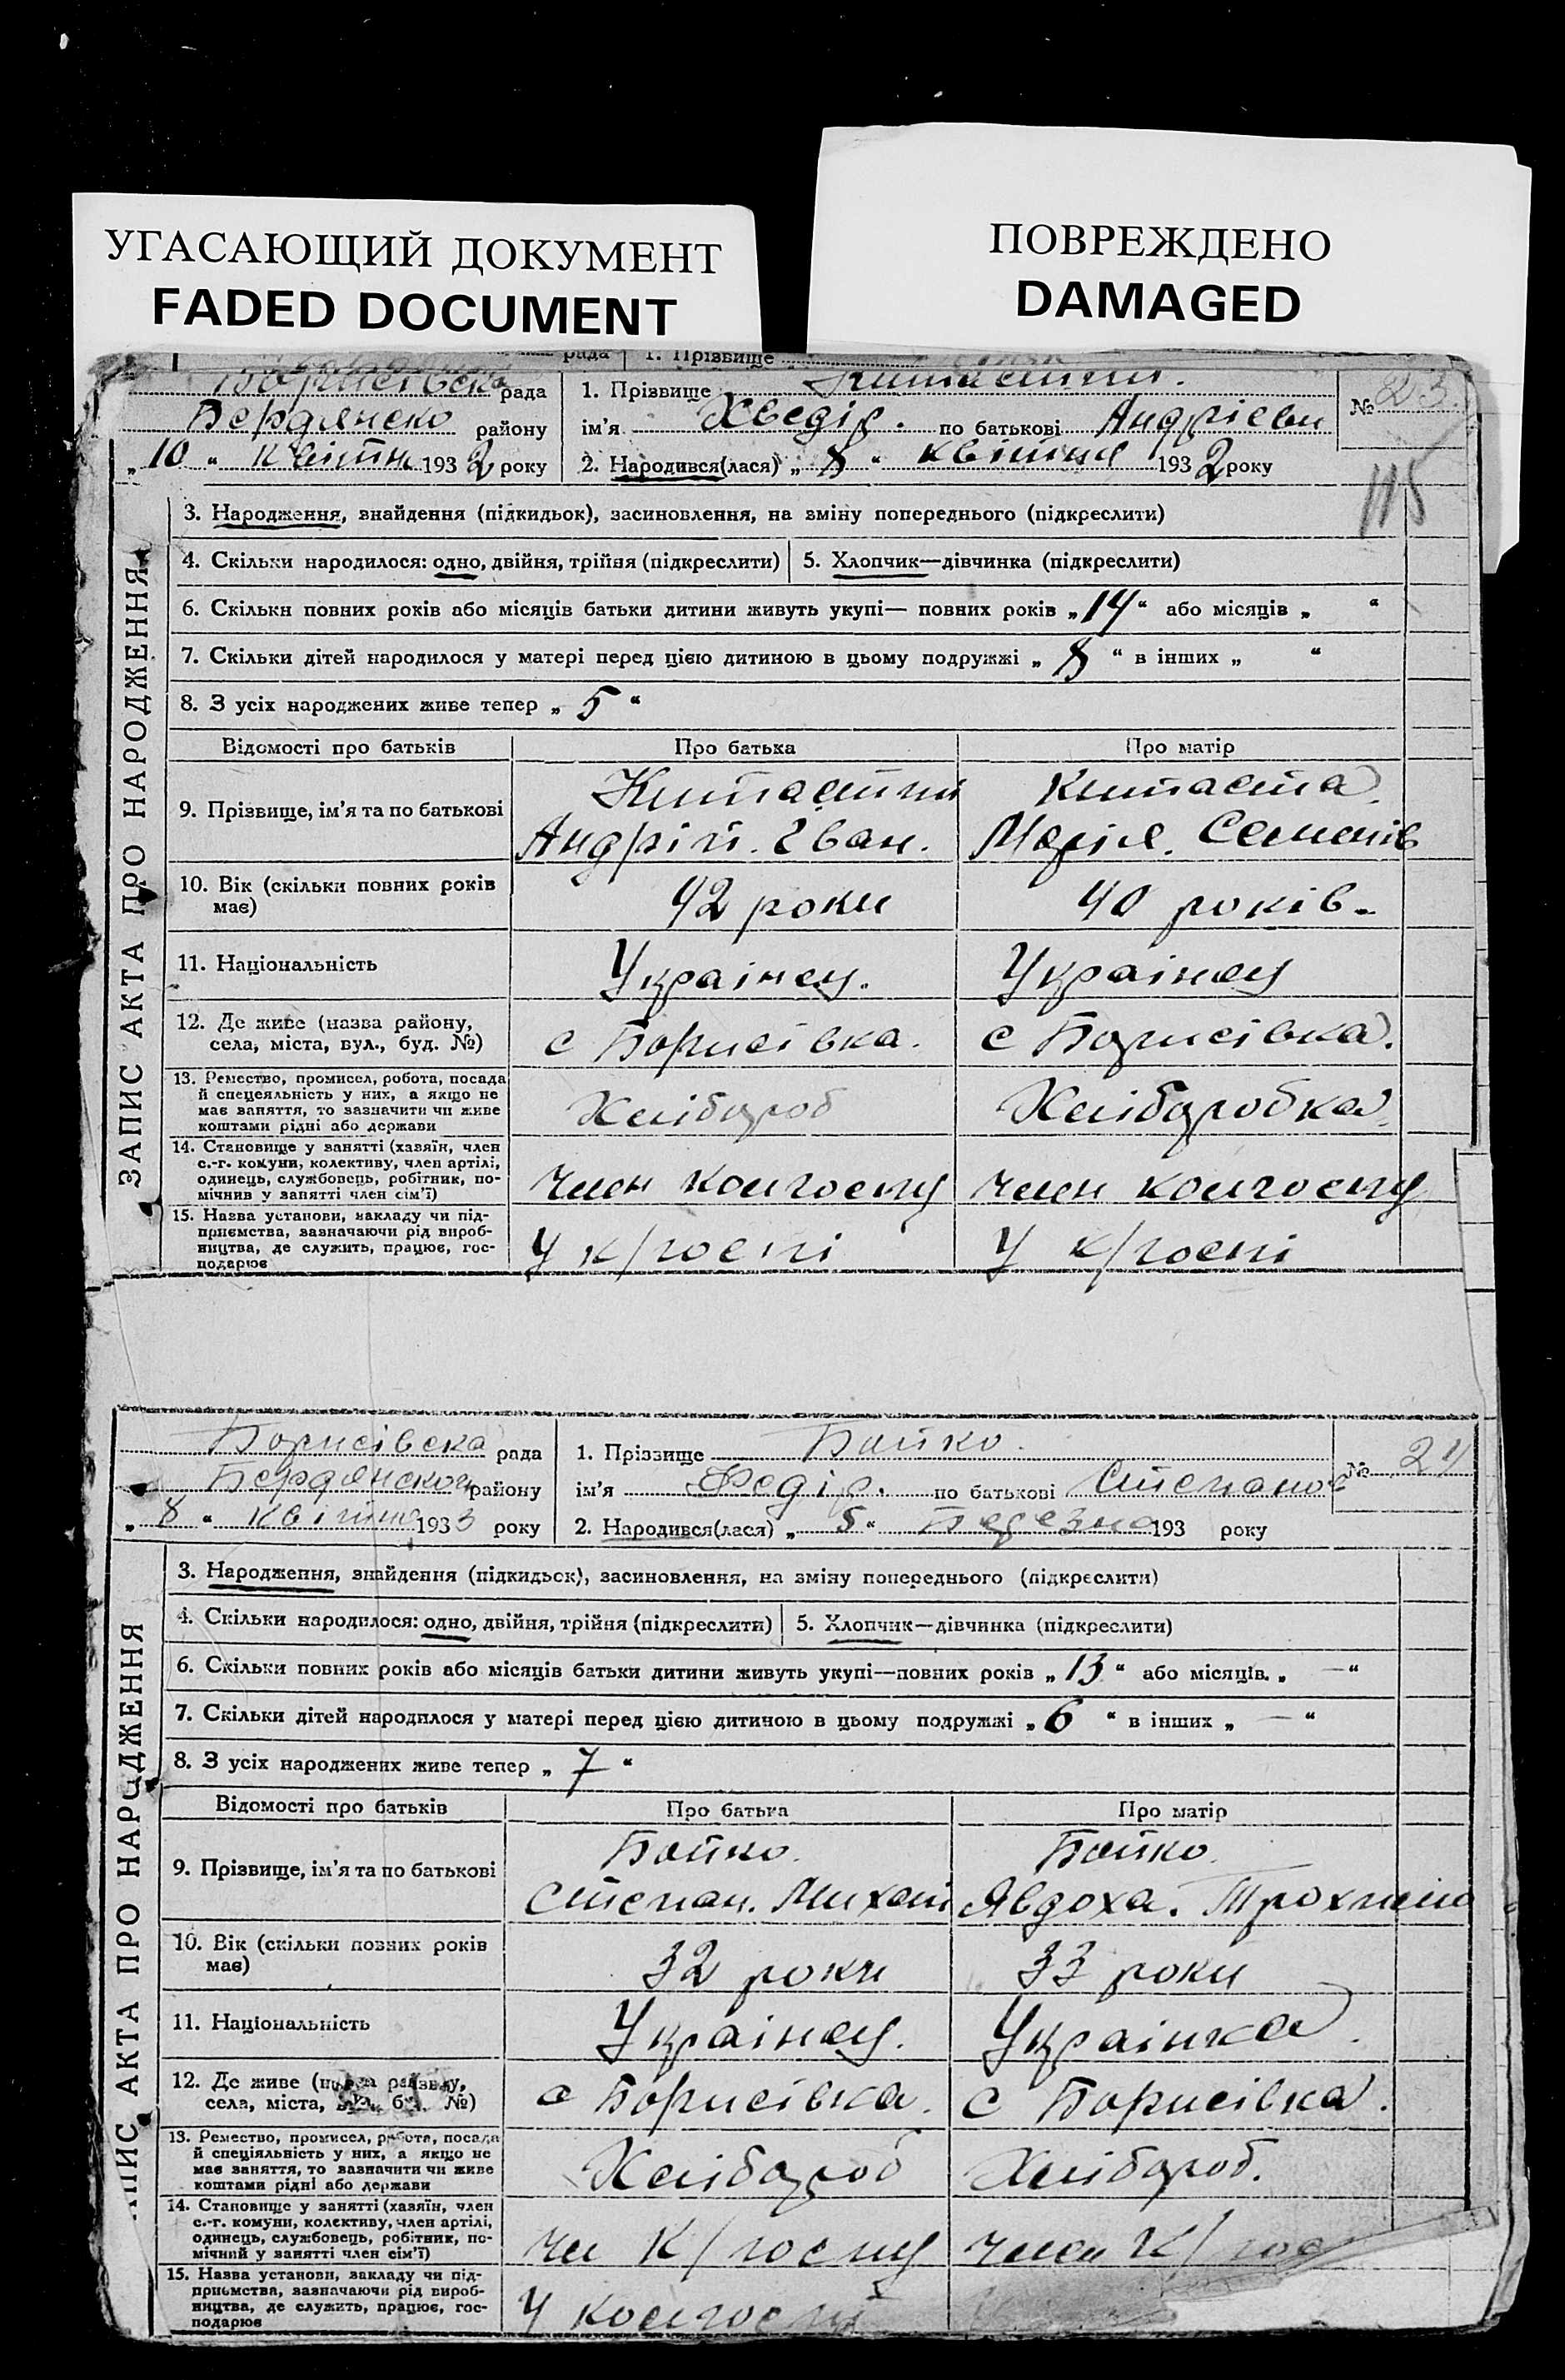 УГАСАЮЩИЙ ДОКУМЕНТ
FADED DOCUMENT
ПОВРЕЖДЕНО
DAMAGED
рада 1. Прізвище
Борисівска рада 1. Прізвище Китастий. № 23.
Бердянско району ім'я Хведір. по батькові Андрієви
„ 10 “ квітня 1932 року 2. Народився(лася) „ 8 “ квітня 1932 року
115
3. Народження, знайдення (підкидьок), засиновлення, на зміну попереднього (підкреслити)
4. Скільки народилося: одно, двійня, трійня (підкреслити) 5. Хлопчик—дівчинка (підкреслити)
6. Скільки повних років або місяців батьки дитини живуть укупі— повних років „14“ або місяців „ “
7. Скільки дітей народилося у матері перед цією дитиною в цьому подружжі „ 8 “ в інших „ “
8. З усіх народжених живе тепер „ 5 “
Відомості про батьків Про батька Про матір
9. Прізвище, ім'я та по батькові Китастий Андрій. Іван. Китаста Марія. Семенів
10. Вік (скільки повних років має) 42 роки 40 років.
11. Національність Украінец. Украінец
12. Де живе (назва району, села, міста, вул., буд. №) с Борисівка. с Борисівка.
13. Ремество, промисел, робота, посада й спецеяльність у них, а якщо не має заняття, то зазначити чи живе коштами рідні або держави Хлібороб Хліборобка
14. Становище у занятті (хазяїн, член с.-г. комуни, колективу, член артілі, одинець, службовець, робітник, помічнив у занятті член сім'ї) член колгоспу член колгоспу
15. Назва установи, закладу чи підприємства, зазначаючи рід виробництва, де служить, працює, господарює У к/госпі У к/госпі
ЗАПИС АКТА ПРО НАРОДЖЕННЯ
Борисівска рада 1. Прізвище Бойко. № 24
Бердянского району ім'я Федір. по батькові Степанов
„ 8 “ квітня 1933 року 2. Народився(лася) „ 5 “ Березня 193 року
3. Народження, знайдення (підкидьок), засиновлення, на зміну попереднього (підкреслити)
4. Скільки народилося: одно, двійня, трійня (підкреслити) 5. Хлопчик—дівчинка (підкреслити)
6. Скільки повних років або місяців батьки дитини живуть укупі—повних років „13“ або місяців. „ —“
7. Скільки дітей народилося у матері перед цією дитиною в цьому подружжі „6 “ в інших „ — “
8. З усіх народжених живе тепер „ 7 “
Відомості про батьків Про батька Про матір
9. Прізвище, ім'я та по батькові Бойко. Степан. Михай Бойко. Явдоха.
10. Вік (скільки повних років має) 32 роки 33 роки
11. Національність Украінец. Украінка
12. Де живе (назва району, села, міста, вул., буд. №) с Борисівка. с Борисівка.
13. Ремество, промисел, робота, посада й спеціяльність у них, а якщо не має заняття, то зазначити чи живе коштами рідні або держави Хлібороб Хлібороб.
14. Становище у занятті (хазяїн, член с.-г. комуни, колективу, член артілі, одинець, службовець, робітник, помічний у занятті член сім'ї) чл К/госпу член К/гос
15. Назва установи, закладу чи підприємства, зазначаючи рід виробництва, де служить, працює, господарює У колгоспі
ЗАПИС АКТА ПРО НАРОДЖЕННЯ